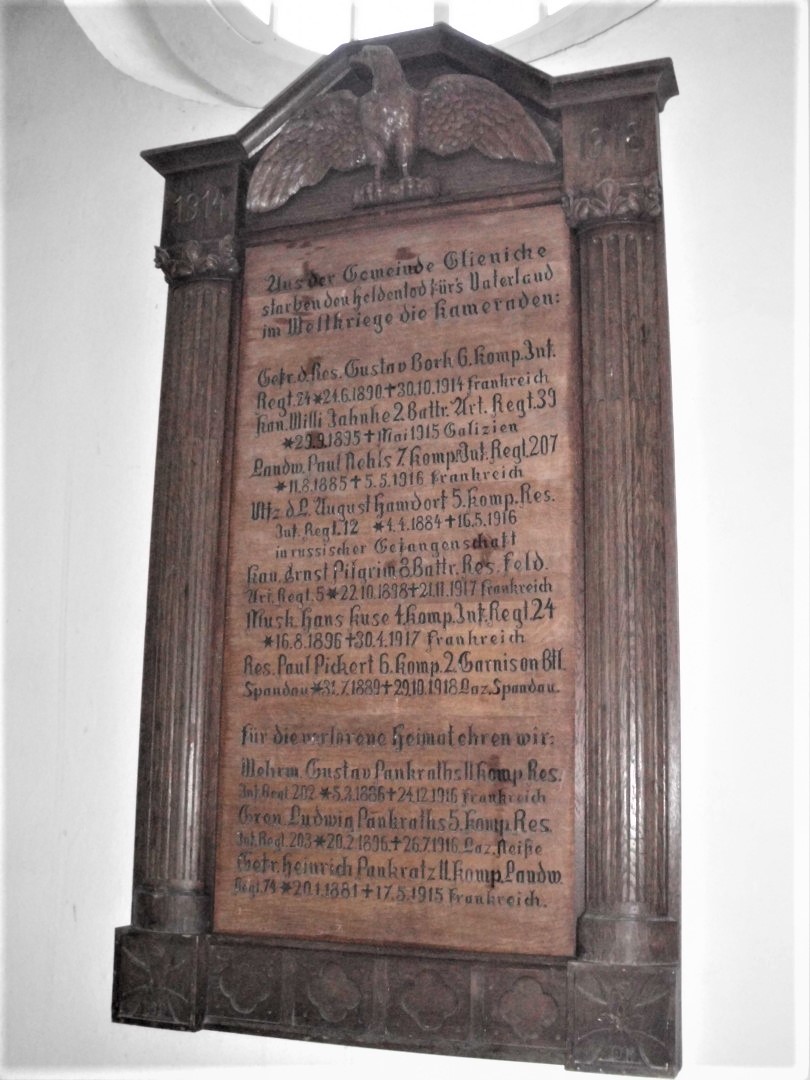 1914
1918
Aus der Gemeinde Glienicke
starben den Heldentod für's Vaterland
im Weltkriege die Kameraden:
Gefr. d. Res. Gustav Bork 6. Komp. Inf.
Regt. 24 *24.6.1890 †30.10.1914 Frankreich
Kan. Willi Jahnke 2. Battr. Art. Regt. 39
*29.9.1895 † Mai 1915 Galizien
Landw. Paul Nehls 7. Komp. Inf. Regt. 207
*11.8.1885 † 5.5.1916 Frankreich
Utfz. d. L. August Hamdorf 5. Komp. Res.
Inf. Regt. 12 *4.4.1884 †16.5.1916
in russischer Gefangenschaft
Kan. Ernst Pilgrim 8. Battr. Res. Feld.
Art. Regt. 5 *22.10.1898 †21.11.1917 Frankreich
Musk. Hans Kuse 4. Komp. Inf. Regt. 24
*16.8.1896 †30.4.1917 Frankreich
Res. Paul Pickert 6. Komp. 2. Garnison Btl.
Spandau *31.7.1889 †29.10.1918 Laz. Spandau.
Für die verlorene Heimat ehren wir:
Wehrm. Gustav Pankraths 11. Komp. Res.
Inf. Regt. 202 *5.3.1886 †24.12.1916 Frankreich
Gren. Ludwig Pankraths 5. Komp. Res.
Inf. Regt. 203 *20.2.1896 †26.7.1916 Laz. Neiße
Gefr. Heinrich Pankratz 11. Komp. Landw.
Regt. 74 *20.1.1881 †17.5.1915 Frankreich.